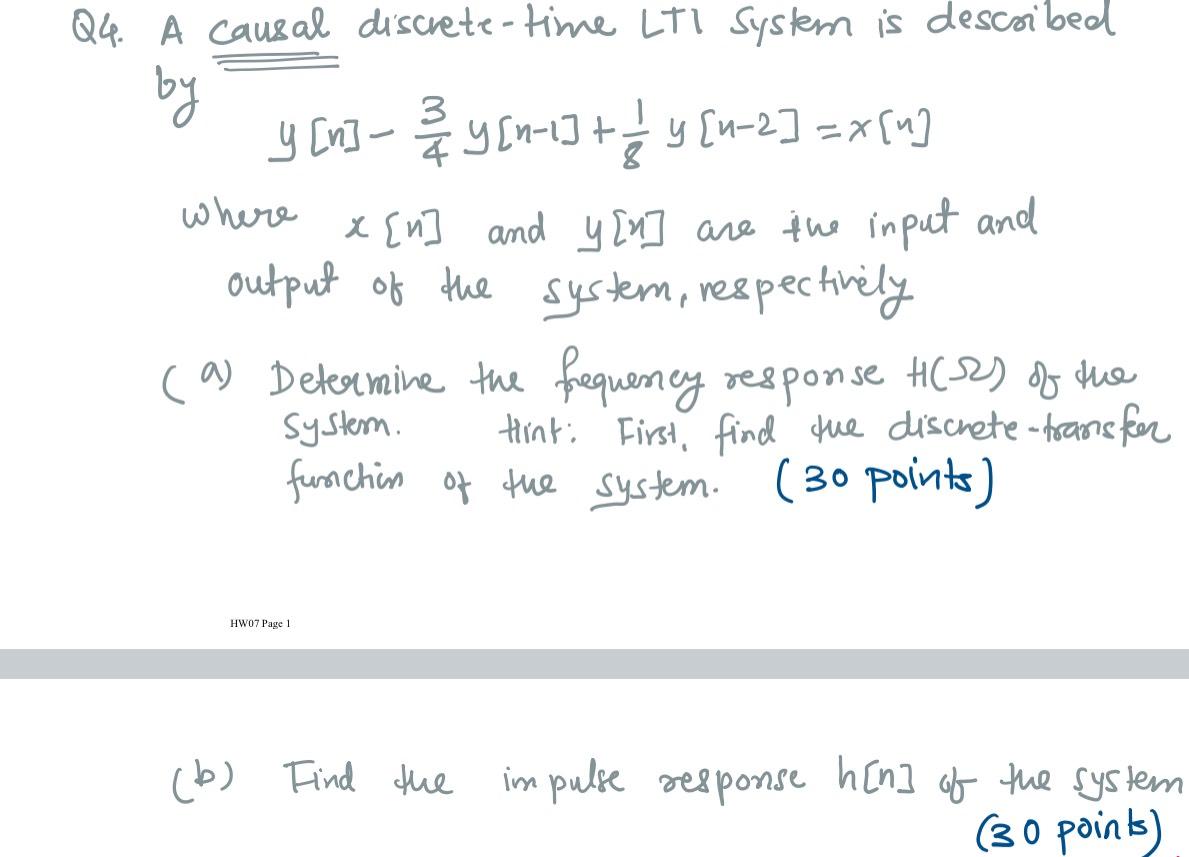 Q4. A causal discrete-time LTI System is described
by
y[n] - 3/4 y[n-1] + 1/8 y[n-2] = x[n]
where x[n] and y[n] are the input and
output of the system, respectively
(a) Determine the frequency response H(Ω) of the
System. Hint: First, find the discrete-transfer
function of the system. (30 points)
HW07 Page 1
(b) Find the impulse response h[n] of the system
(30 points)